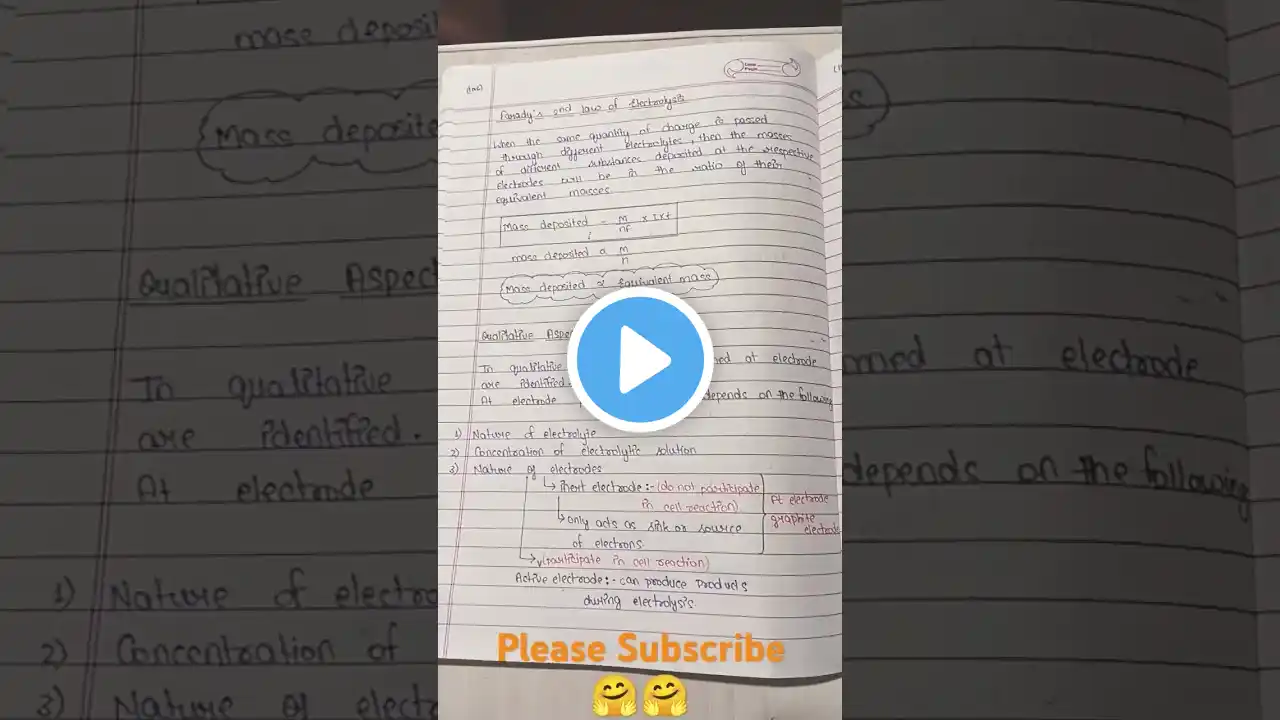 Farady's 2nd law of Electrolysis
When the same quantity of charge is passed
through different electrolytes, then the masses
of different substances deposited at the respective
electrodes will be in the ratio of their
equivalent masses.
Mass deposited = M/nF × I×t
mass deposited α M/n
Mass deposited ∝ Equivalent mass
Qualitative Aspec
In qualitative med at electrode
are identified.
At electrode depends on the following
1) Nature of electrolyte
2) Concentration of electrolytic solution
3) Nature of electrodes
↳ inert electrode :- (do not participate
in cell reaction)
↳ only acts as sink or source
of electrons.
Pt electrode
graphite
electrode
↳ (participate in cell reaction)
Active electrode :- can produce products
during electrolysis.
Please Subscribe